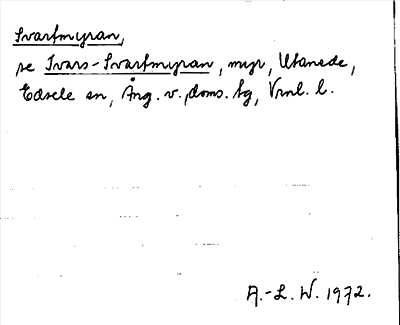 Svartmyran,
se Ivars-Svartmyran, myr, Utanede,
Edsele sn, Ång. v., doms. hg, Vrnl. l.
A.-L. W. 1972.